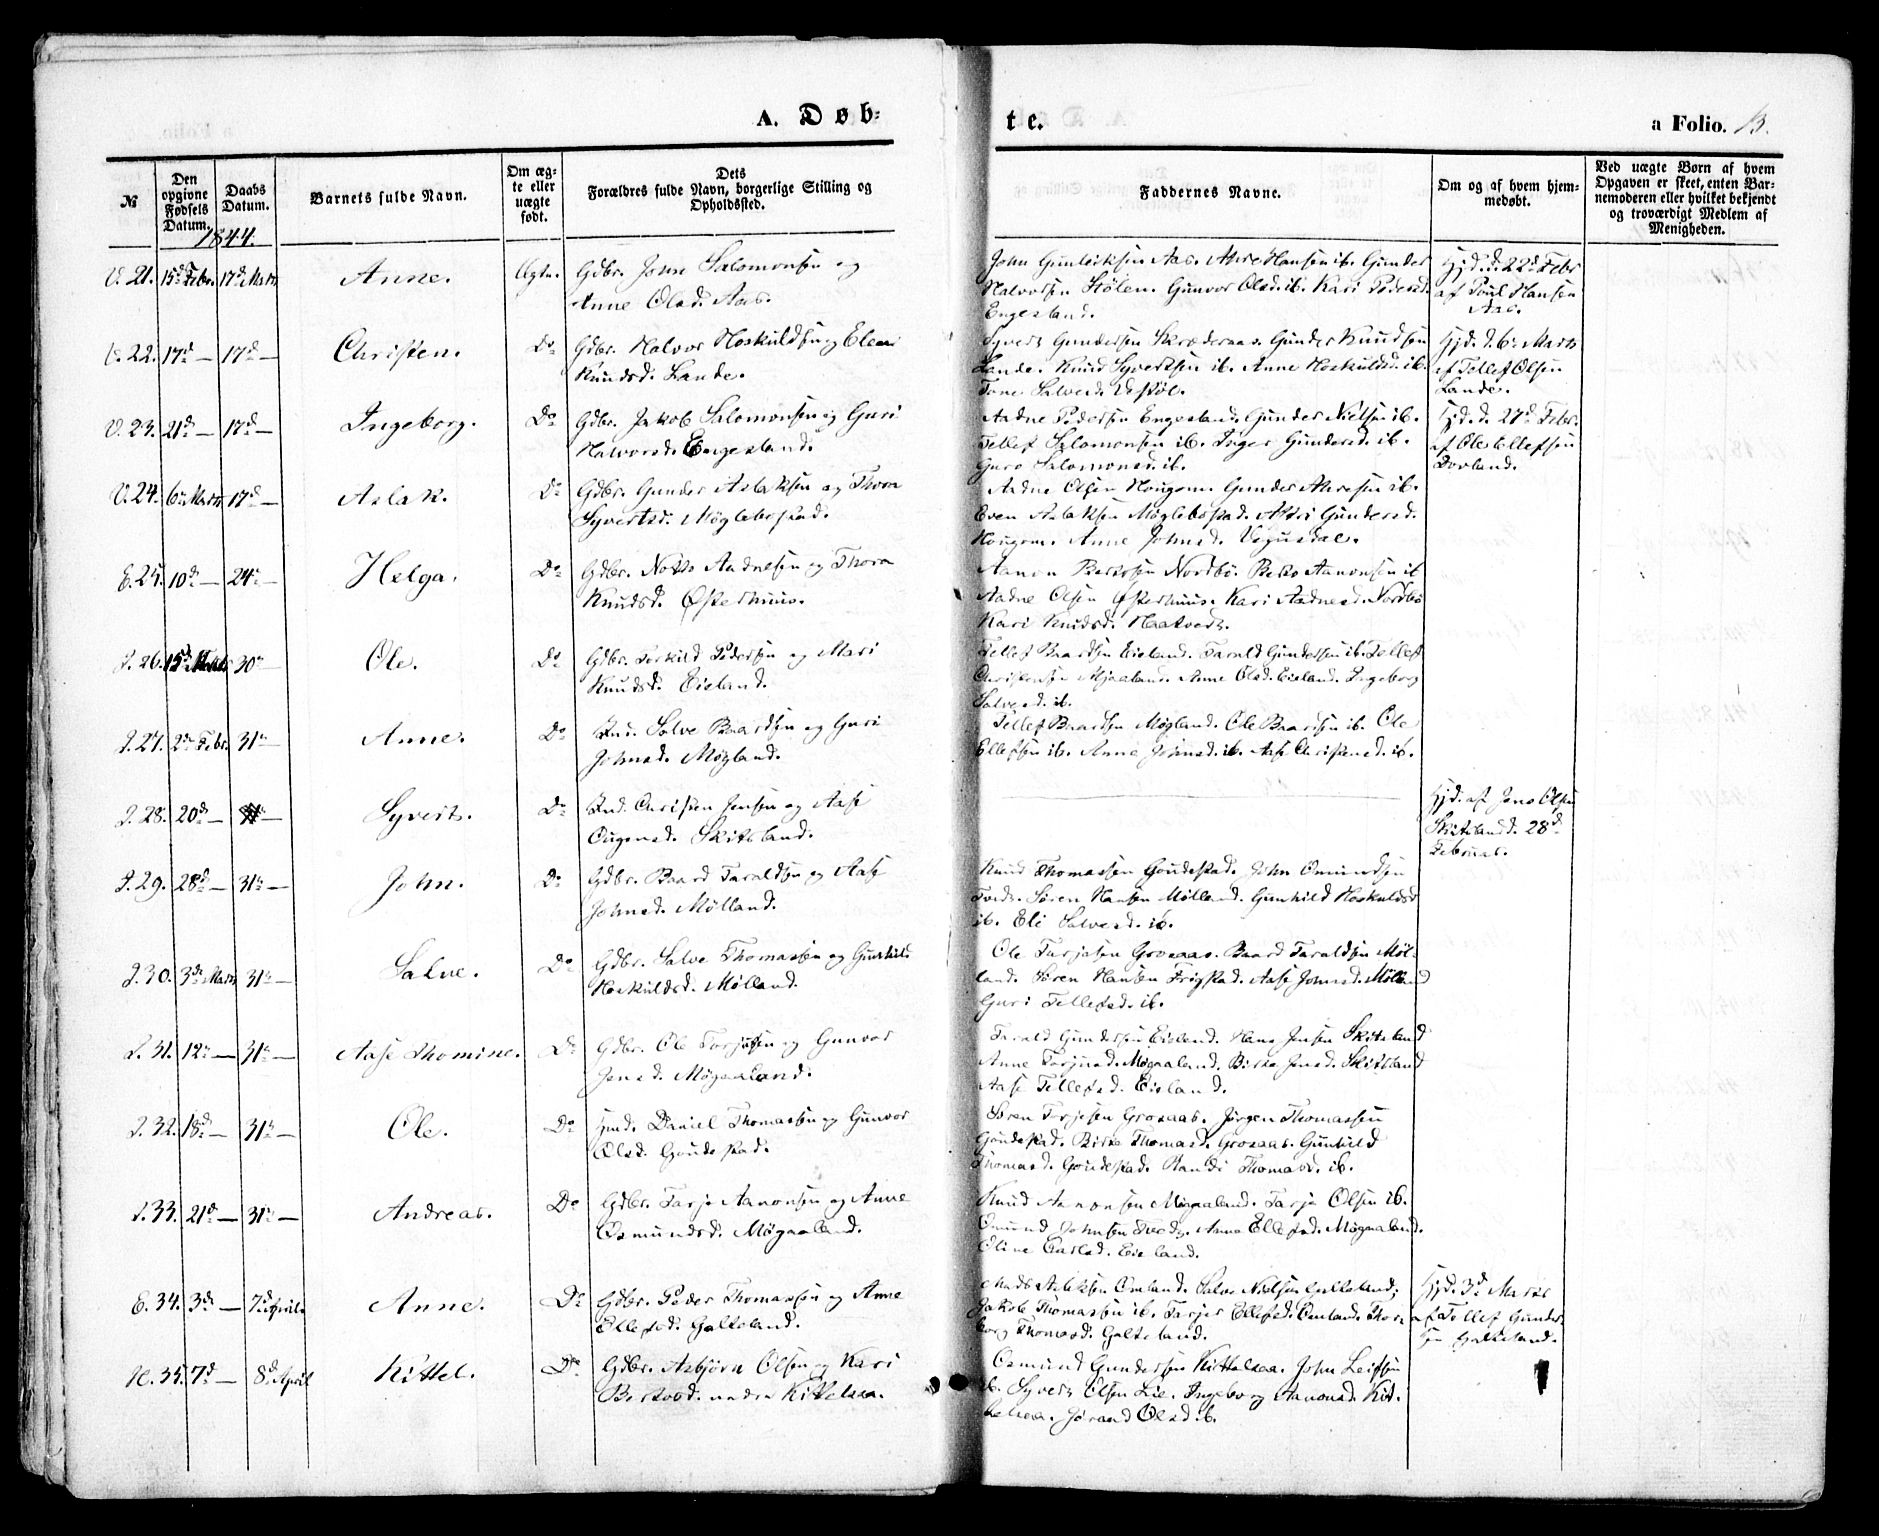 A. Døb=
te.
a Folio. 13.
№
Den opgivne Fødsels Datum.
Daabs Datum.
Barnets fulde Navn.
Om ægte eller uægte født.
Dets Forældres fulde Navn, borgerlige Stilling og Opholdssted.
Faddernes Navne.
Om og af hvem hjemmedøbt.
Ved uægte Børn af hvem Opgaven er skeet, enten Barnemoderen eller hvilket bekjendt og troværdigt Medlem af Menigheden.
1844.
V. 21. 15d Febr. 17d Marts Anne. Ægte. Gdbr. John Salomonsen og
Anne Olsd. Aas.
John Gunleiksen Aas. Hansen ib. Gunder
Halvorsen Stølen. Gunvor Olsd. ib. Kari Pedersd.
Engesland.
Hjd. d. 22d Febr
af Poul Hansen
Aas.
V. 22. 17d — 17d — Christen. Do Gdbr. Halvor Hoskuldsen og Elen
Knudsd. Lande.
Syvert Gundersen Skrædernas. Gunder Knudsen
Lande. Knud Syvertsen ib. Anne Hoskuldsd. ib.
Tone Salvesd.
Hjd. d. 6te Marts
af Tellef Olsen
Lande.
V. 23. 21d — 17d — Ingeborg. Do Gdbr. Jakob Salomonsen og Guri
Halvorsd. Engesland.
Aadne Pedersen Engesland. Gunder Nielsen ib.
Tellef Salomonsen ib. Inger Gundersd. ib.
Guro Salomonsd. ib.
Hjd. d. 27d Febr.
af Ole Ellefsen
Dovland.
V. 24. 6te Marts 17d — Aslak. Do Gdbr. Gunder Aslaksen og Thora
Syvertsd. Møglebostad.
Aadne Olsen Hougom. Gunder ib.
Even Aslaksen Møglebostad. Gundersd.
Hougom. Anne Johnsd. Vegusdal.
E. 25. 10d — 24de — Helga. Do Gdbr. Notto Aadnesen og Thora
Knudsd. Østerhuus.
Aanon Berthosen Nordbø. Aanonsen ib
Aadne Olsen Østerhuus. Kari Aadnesd. Nordbø
Kari Knudsd. Haatvedt.
I. 26. 15d Marts 30te — Ole. Do Gdbr. Terkild Pedersen og Mari
Knudsd. Eieland.
Tellef Baardsen Eieland. Tarald Gundersen ib. Tellef
Christensen Mjaaland. Anne Olsd. Eieland. Ingeborg
Salvesd. ib.
I. 27. 2den Febr. 31te — Anne. Do Ind. Salve Baardsen og Guri
Johnsd. Møgland.
Tellef Baardsen Møgland. Ole Baardsen ib. Ole
Ellefsen ib. Anne Johnsd. ib. Aase Christensd. ib.
I. 28. 20de — Syvert. Do Ind. Christen Jensen og Aase
Ougensd. Skitsland.
Hjd. af Jens Olsen
Skitsland d. 28d
Februar.
I. 29. 28d — 31te — John. Do Gdbr. Baard Taraldsen og Aase
Johnsd. Mølland.
Knud Thomassen Goudestad. John Omundsen
Tveit. Søren Hansen Mølland. Gunhild Hoskuldsd
ib. Eli Salvesd. ib.
I. 30. 3de Marts 31te — Salve. Do Gdbr. Salve Thomassen og Gunhild
Hoskuldsd. Mølland.
Ole Tarjesen Grosaas. Baard Taraldsen Møl-
land. Søren Hansen Frigstad. Aase Johnsd. Mølland
Guri Tellefsd. ib.
I. 31. 12te — 31te — Aase Thomine. Do Gdbr. Ole Torjusen og Gunvor
Jensd. Møgaaland.
Tarald Gundersen Eieland. Hans Jensen Skitsland
Anne Torjusd. Møgaaland. Birthe Jensd. Skitsland
Aase Tellefsd. Eieland.
I. 32. 18d — 31te — Ole. Do Hmd. Daniel Thomassen og Gunvor
Olsd. Goudestad.
Søren Tarjesen Grosaas. Jørgen Thomassen
Goudestad. Birthe Thomasd. Grosaas. Gunhild
Thomasd. Goudestad. Randi Thomasd. ib.
I. 33. 21d — 31te — Andreas. Do Gdbr. Tarje Aanonsen og Anne
Osmundsd. Møgaaland.
Knud Aanonsen Møgaaland. Tarje Olsen ib.
Omund Johnsen Tvedt. Anne Ellefsd. Møgaaland.
Eline Eieland.
E. 34. 3de — 7d April Anne. Do Gdbr. Peder Thomassen og Anne
Ellefsd. Galteland.
Mads Aslaksen Omland. Salve Nielsen Galteland;
Jakob Thomassen ib. Tarjer Ellefsd. Omland. Thor-
borg Thomasd. Galteland.
Hjd. 3d Marts
af Tellef Gunder-
sen Galteland.
H. 35. 7d — 8d April Kittel. Do Gdbr. Asbjørn Olsen og Kari
Berthosd. nedre Kittelsaa.
Osmund Gundersen Kittelsaa. John Leifsen
ib. Syvert Olsen Lie. Ingeborg Aanonsd. Kit-
telsaa. Jørand Olsd. ib.